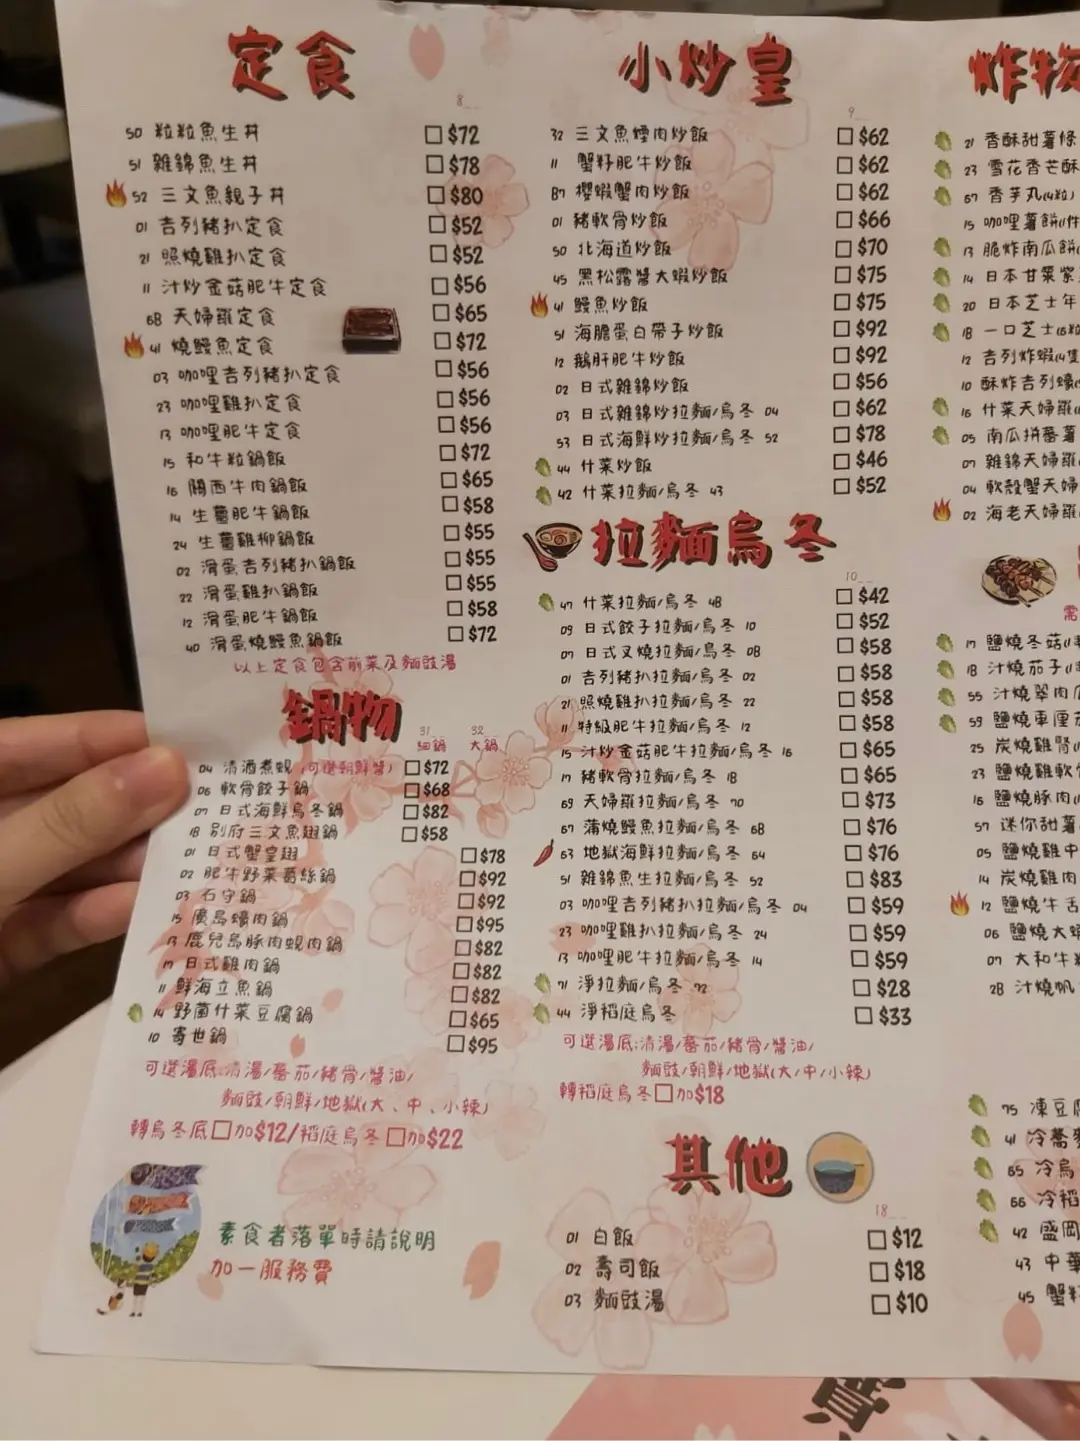 定食
8__
50 粒粒魚生丼 □$72
51 雜錦魚生丼 □$78
52 三文魚親子丼 □$80
01 吉列豬扒定食 □$52
21 照燒雞扒定食 □$52
11 汁炒金菇肥牛定食 □$56
68 天婦羅定食 □$65
41 燒鰻魚定食 □$72
03 咖哩吉列豬扒定食 □$56
23 咖哩雞扒定食 □$56
13 咖哩肥牛定食 □$56
15 和牛粒鍋飯 □$72
16 關西牛肉鍋飯 □$65
14 生薑肥牛鍋飯 □$58
24 生薑雞柳鍋飯 □$55
02 滑蛋吉列豬扒鍋飯 □$55
22 滑蛋雞扒鍋飯 □$55
12 滑蛋肥牛鍋飯 □$58
40 滑蛋燒鰻魚鍋飯 □$72
以上定食包含前菜及麵豉湯
鍋物
31__ 32__
細鍋 大鍋
04 清酒煮蜆 (可選朝鮮醬) □$72
06 軟骨餃子鍋 □$68
07 日式海鮮烏冬鍋 □$82
18 別府三文魚翅鍋 □$58
01 日式蟹皇翅 □$78
02 肥牛野菜葛絲鍋 □$92
03 石守鍋 □$92
15 廣島蠔肉鍋 □$95
13 鹿兒島豚肉蜆肉鍋 □$82
17 日式雞肉鍋 □$82
11 鮮海立魚鍋 □$82
14 野菌什菜豆腐鍋 □$65
10 寄世鍋 □$95
可選湯底:清湯/蕃茄/豬骨/醬油/
麵豉/朝鮮/地獄(大、中、小辣)
轉烏冬底□加$12/稻庭烏冬□加$22
素食者落單時請說明
加一服務費
小炒皇
9__
32 三文魚煙肉炒飯 □$62
11 蟹籽肥牛炒飯 □$62
87 櫻蝦蟹肉炒飯 □$62
01 豬軟骨炒飯 □$66
50 北海道炒飯 □$70
45 黑松露醬大蝦炒飯 □$75
41 鰻魚炒飯 □$75
51 海膽蛋白帶子炒飯 □$92
12 鵝肝肥牛炒飯 □$92
02 日式雜錦炒飯 □$56
03 日式雜錦炒拉麵/烏冬 04 □$62
53 日式海鮮炒拉麵/烏冬 52 □$78
44 什菜炒飯 □$46
42 什菜拉麵/烏冬 43 □$52
拉麵烏冬
10__
47 什菜拉麵/烏冬 48 □$42
09 日式餃子拉麵/烏冬 10 □$52
07 日式叉燒拉麵/烏冬 08 □$58
01 吉列豬扒拉麵/烏冬 02 □$58
21 照燒雞扒拉麵/烏冬 22 □$58
11 特級肥牛拉麵/烏冬 12 □$58
15 汁炒金菇肥牛拉麵/烏冬 16 □$65
17 豬軟骨拉麵/烏冬 18 □$65
69 天婦羅拉麵/烏冬 70 □$73
67 蒲燒鰻魚拉麵/烏冬 68 □$76
63 地獄海鮮拉麵/烏冬 64 □$76
51 雜錦魚生拉麵/烏冬 52 □$83
03 咖哩吉列豬扒拉麵/烏冬 04 □$59
23 咖哩雞扒拉麵/烏冬 24 □$59
13 咖哩肥牛拉麵/烏冬 14 □$59
71 淨拉麵/烏冬 72 □$28
44 淨稻庭烏冬 □$33
可選湯底:清湯/蕃茄/豬骨/醬油/
麵豉/朝鮮/地獄(大/中/小辣)
轉稻庭烏冬□加$18
其他
18__
01 白飯 □$12
02 壽司飯 □$18
03 麵豉湯 □$10
炸物
21 香酥甜薯條
23 雪花香芒酥
67 香芋丸(4粒)
15 咖哩薯餅(1件
13 脆炸南瓜餅(
14 日本甘栗紫
20 日本芝士年
18 一口芝士(6粒
12 吉列炸蝦(4隻
10 酥炸吉列蠔(
16 什菜天婦羅(
05 南瓜拼蕃薯
07 雜錦天婦羅
04 軟殼蟹天婦
02 海老天婦羅(
需
17 鹽燒冬菇(1
18 汁燒茄子(
55 汁燒翠肉瓜
59 鹽燒車厘茄
25 炭燒雞腎(
23 鹽燒雞軟骨
16 鹽燒豚肉(
57 迷你甜薯
05 鹽燒雞中
14 炭燒雞肉
12 鹽燒牛舌
06 鹽燒大蝦
07 大和牛
28 汁燒帆
75 凍豆腐
41 冷蕎麥
65 冷烏
66 冷稻
42 盛岡
43 中華
45 蟹籽